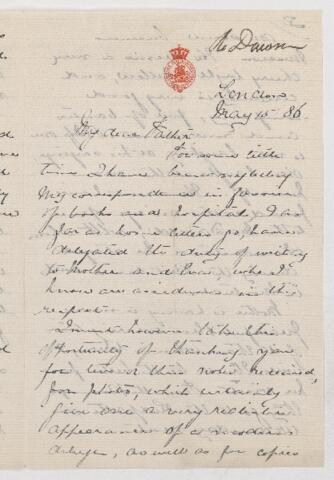 London
May 15 86
My dear Father
For some little
time I have been neglecting
my correspondence in favour
of books and hospital & as
far as home letters go, have
delegated the duty of writing
to Mother and Eva, who I
know are assiduous in this
respect.
I must however take this
opportunity of thanking you
for two or three notes received,
for photos, which certainly
give one a very realistic
appearance of a modern
deluge, as well as for copies